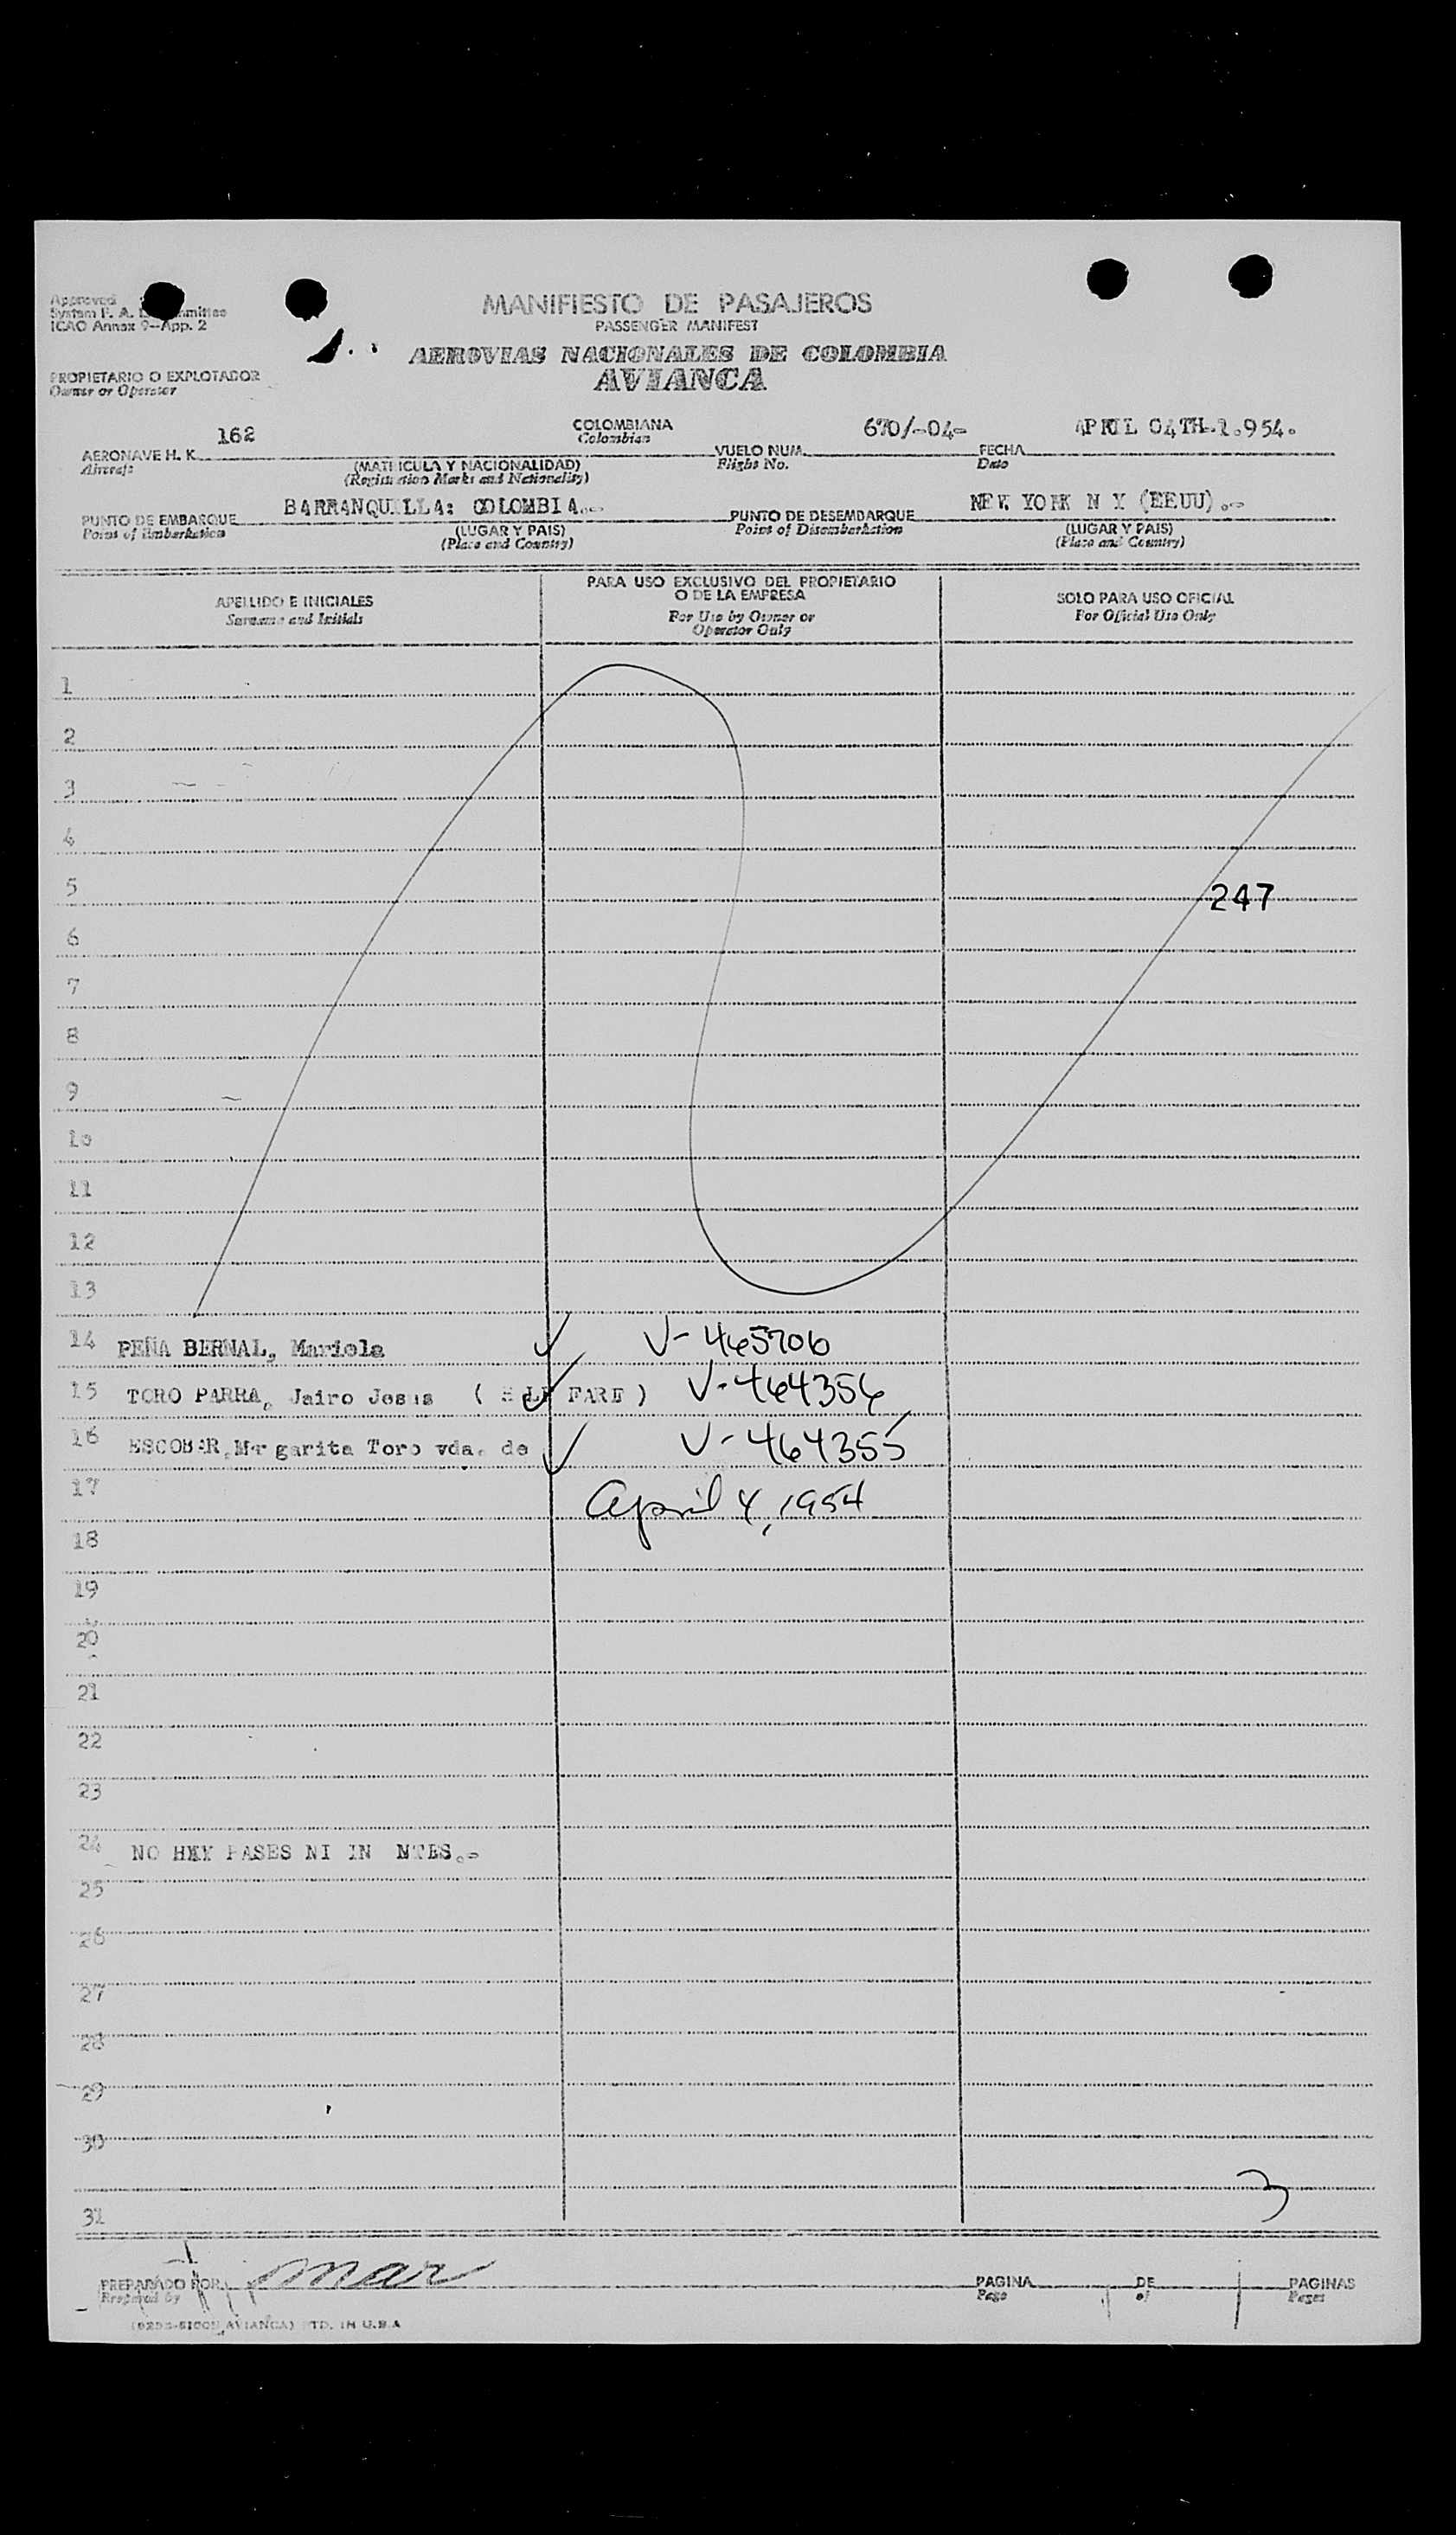 Approved
System F. A. L. Committee
ICAO Annex 9—App. 2
MANIFIESTO DE PASAJEROS
PASSENGER MANIFEST
AEROVIAS NACIONALES DE COLOMBIA
AVIANCA
PROPIETARIO O EXPLOTADOR
Owner or Operator
AERONAVE H. K. 162 COLOMBIANA VUELO NUM. 670/-04- FECHA APRIL 04TH-1.954.
Aircraft Colombian Flight No. Date
(MATRICULA Y NACIONALIDAD)
(Registration Marks and Nationality)
PUNTO DE EMBARQUE BARRANQUILLA: COLOMBIA.- PUNTO DE DESEMBARQUE NEW YORK N Y (EEUU).-
Point of Embarkation (LUGAR Y PAIS) Point of Disembarkation (LUGAR Y PAIS)
(Place and Country) (Place and Country)
APELLIDO E INICIALES PARA USO EXCLUSIVO DEL PROPIETARIO O DE LA EMPRESA SOLO PARA USO OFICIAL
Surname and Initials For Use by Owner or Operator Only For Official Use Only
1
2
3
4
5 247
6
7
8
9
10
11
12
13
14 PEÑA BERNAL, Mariola V-465706
15 TORO PARRA, Jairo Jesus ( HALF FARE ) V-464356
16 ESCOBAR, Margarita Toro vda. de V-464355
17 April 4, 1954
18
19
20
21
22
23
24 NO HAY PASES NI IN MTES.-
25
26
27
28
29
30
31 3
PREPARADO POR mar PAGINA 1 DE 1 PAGINAS
Prepared by Page of Pages
AVIANCA) PTD. IN U.S.A